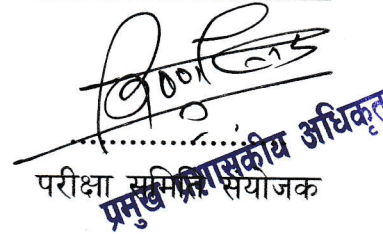 ....................
परीक्षा समिति संयोजक
प्रमुख प्रशासकीय अधिकृत